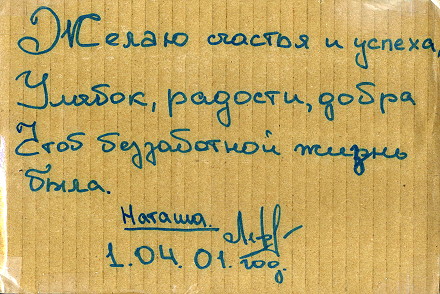 Желаю счастья и успеха,
Улыбок, радости, добра
Чтоб беззаботной жизнь
была.
Наташа.
1.04.01. год.